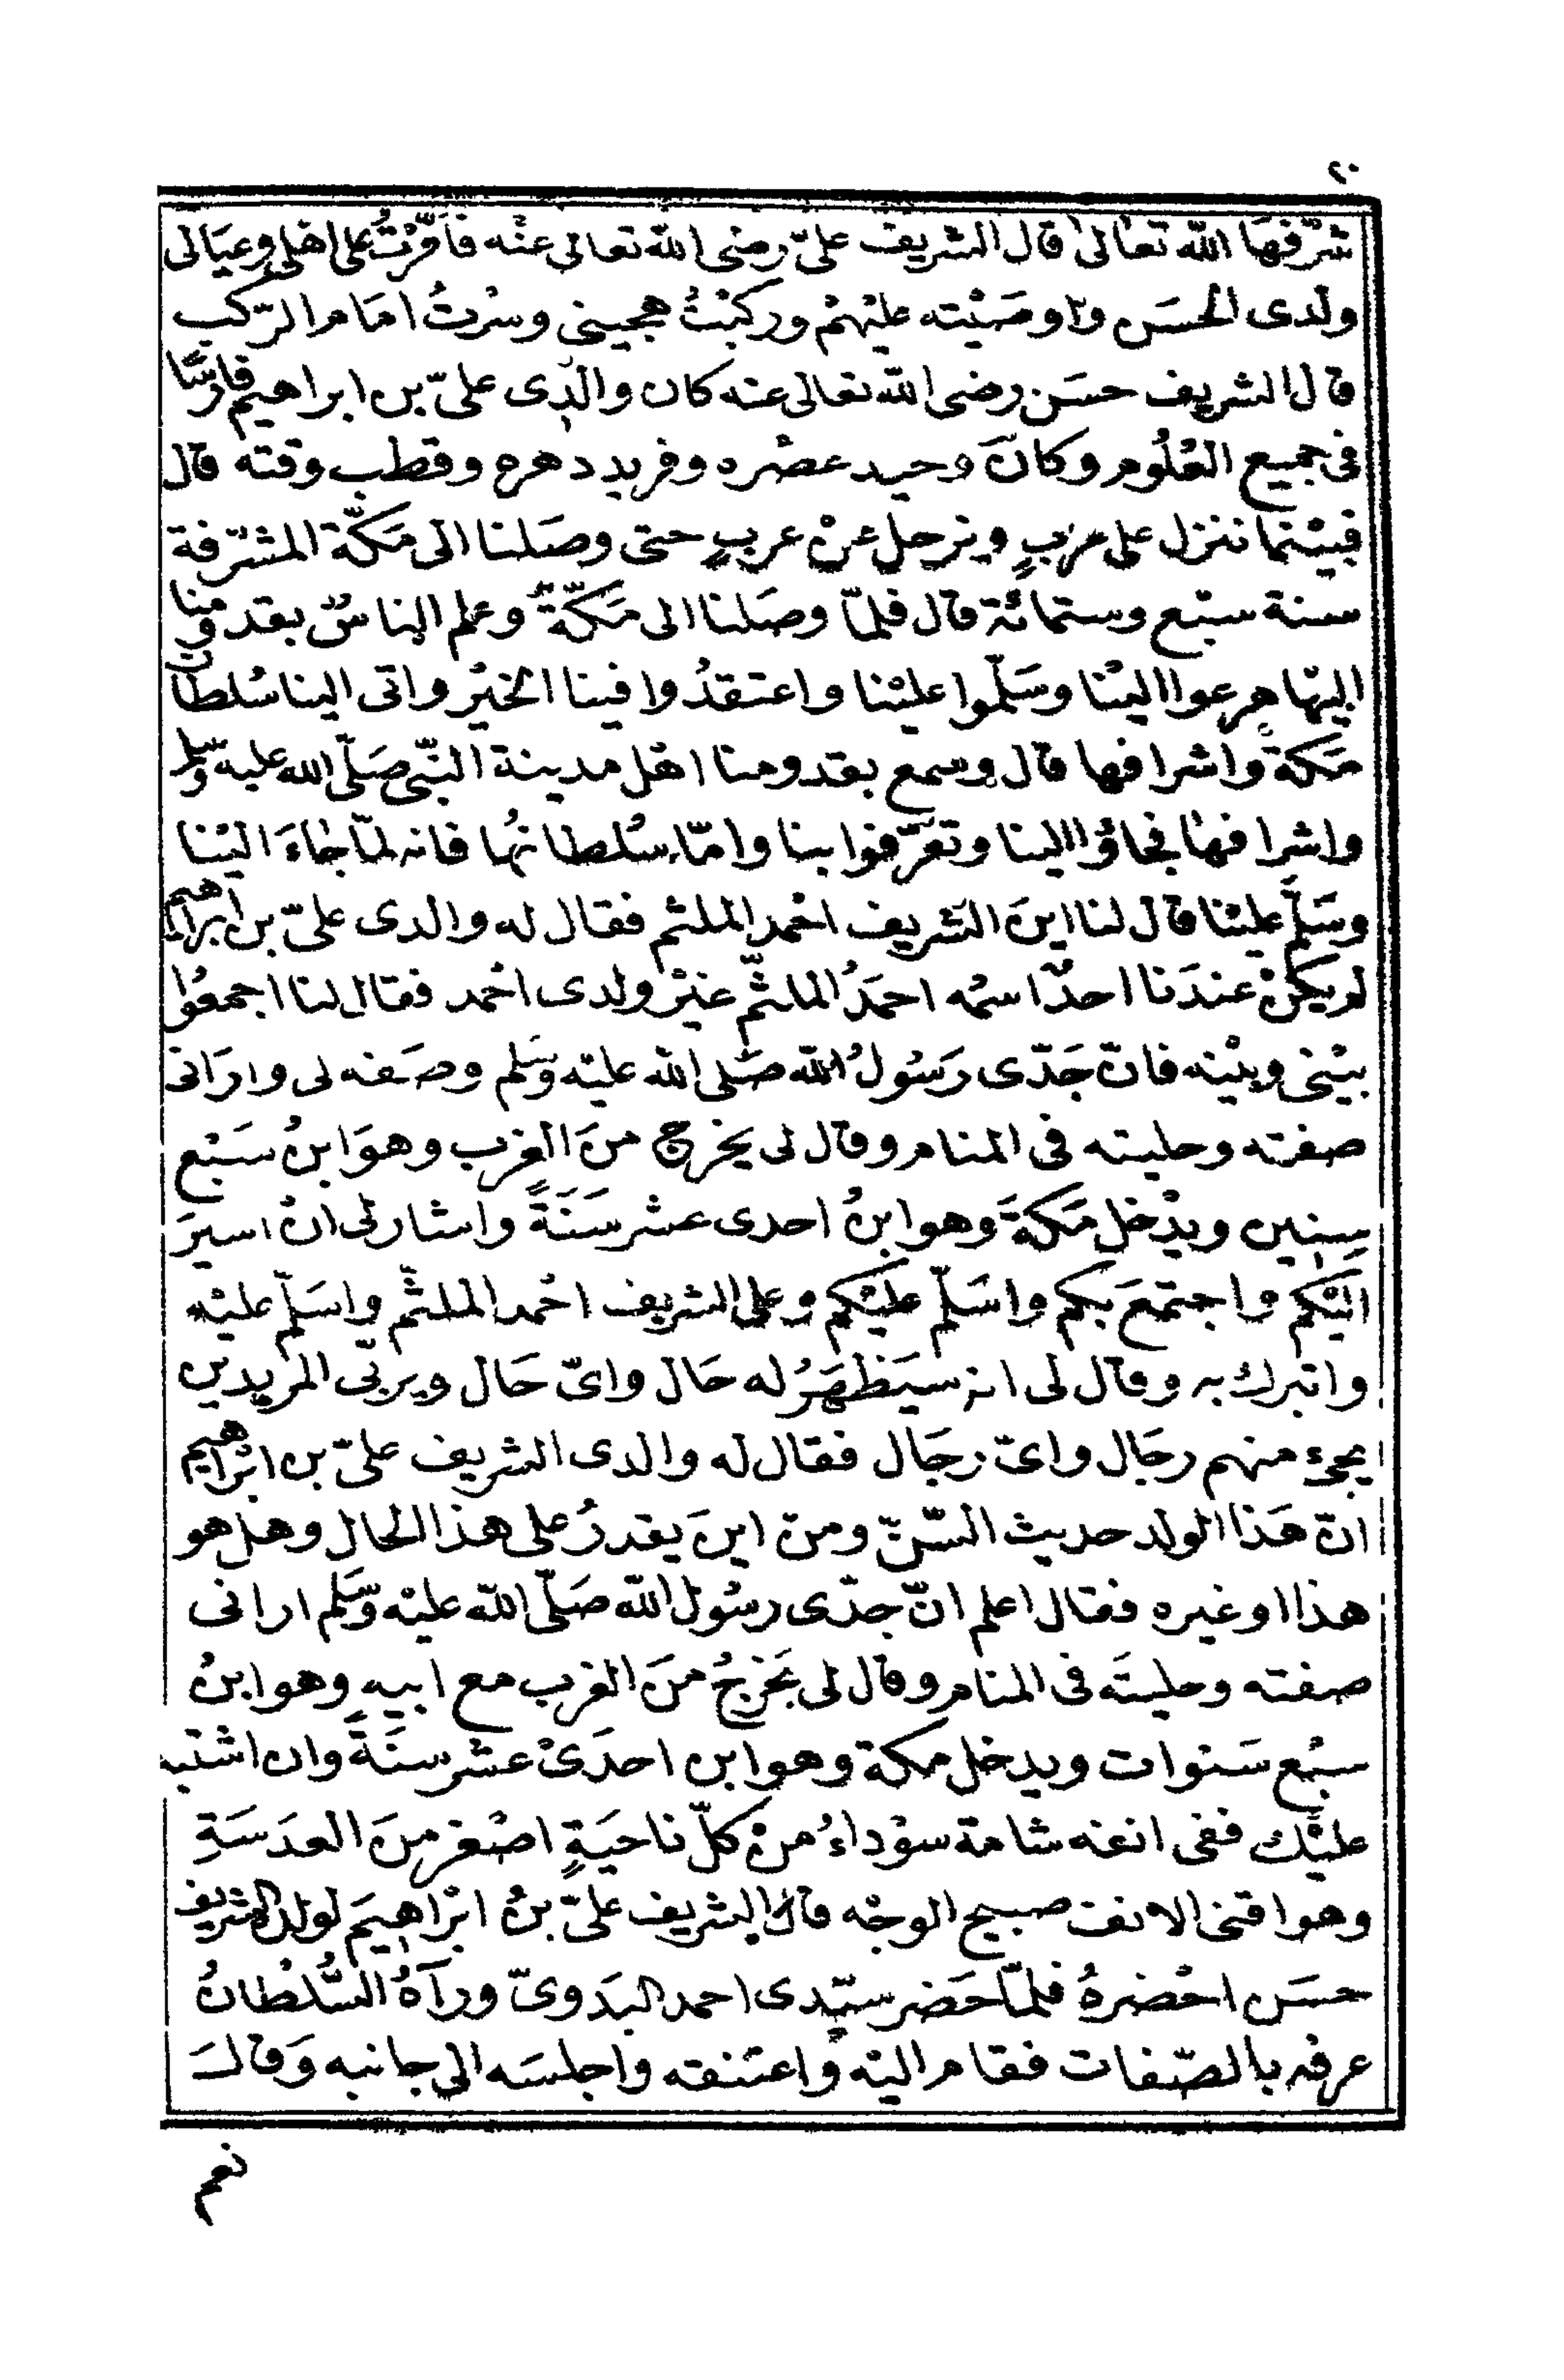 ٢٠
شرّفها الله تعالى قال الشريف علىّ رضى الله تعالى عنه فأمّرتُ على اهلى وعيالى
ولدى الحسَن واوصَيْته عليْهمْ وركبْتُ هجينى وسْرتُ امَام الرّكب
قال الشريف حسَن رضى الله تعالى عنه كان والدى علىّ بن ابراهيم فارسًا
فى جميع العُلُوم وكانَ وحيد عصْره وفريد دهره وقطب وقته قال
فبيْنما ننزل على عربٍ ونرحل عنْ عربٍ حتى وصَلنا الى مَكّة المشرّفة
سنة سبْع وستمائة قال فلمّا وصَلنا الى مَكّةَ وعلم الناسُ بقدومنا
اليْها هرعوا اليْنا وسَلّموا عليْنا واعتقدُوا فينا الخيْر واتى الينا سُلطان
مَكةَ واشرافها قال وسمع بقدومنا اهْل مدينة النّبى صَلّى الله عليه وسلم
واشرافها فجاؤا الينا وتعرّفوا بنا وامّا سُلطانُها فانه لمّا جاءَ اليْنا
وسَلّم عليْنا قال لنا اينَ الشريف احْمد الملثم فقال له والدى علىّ بن ابراهيم
لم يكنْ عندَنا احدٌ اسمُه احمَدُ الملثّم غيْر ولدى احْمد فقال لنا اجمعُوا
بيْنى وبيْنه فانّ جَدّى رَسُولُ الله صَلى الله عليْه وسَلم وصَفه لى وارَانى
صفته وحليته فى المنام وقال لى يخرج منَ الغرب وهوَ ابنُ سَبْع
سِنِين ويدْخل مَكةَ وهو ابنُ احدى عشر سَنَةً واشار لى انْ اسيرَ
اليْكم واجتمعَ بكم واسَلّم عليْكم وعلى الشريف احْمد الملثّم واسَلّم عليْه
واتبرك به وقال لى انه سيَظهَرُ له حَال واىّ حَال ويربّى المريدين
يجئ منهم رجَال واىّ رجَال فقال له والدى الشريف علىّ بن ابْراهيم
انّ هَذا الولد حديث السّنّ ومن اينَ يقدرُ على هذا الحال وهل هو
هذا او غيره فقال اعلم انّ جدّى رسُول الله صَلّى الله عليْه وسَّلم ارانى
صفته وحليتَه فى المنام وقال لى يَخرجُ منَ الغرب مع ابيهِ وهو ابنُ
سبْع سَنوات ويدخل مكة وهو ابن احدَىْ عشر سنَةً وان اشتبه
عليْك ففى انفه شامة سوْداءُ منْ كلّ ناحيَةٍ اصْغر مِنَ العدَسَةِ
وهو اقنى الانف صبيح الوجْه قالَ الشريف علىّ بنُ ابْراهيمَ لولده الشريف
حسَن احْضرهُ فلمّا حَضر سيّدى احمد البَدوىّ ورآهُ السُّلطانُ
عرفه بالصّفات فقام اليْه واعتنقه واجلسَه الى جانبه وَقالَ
نعم